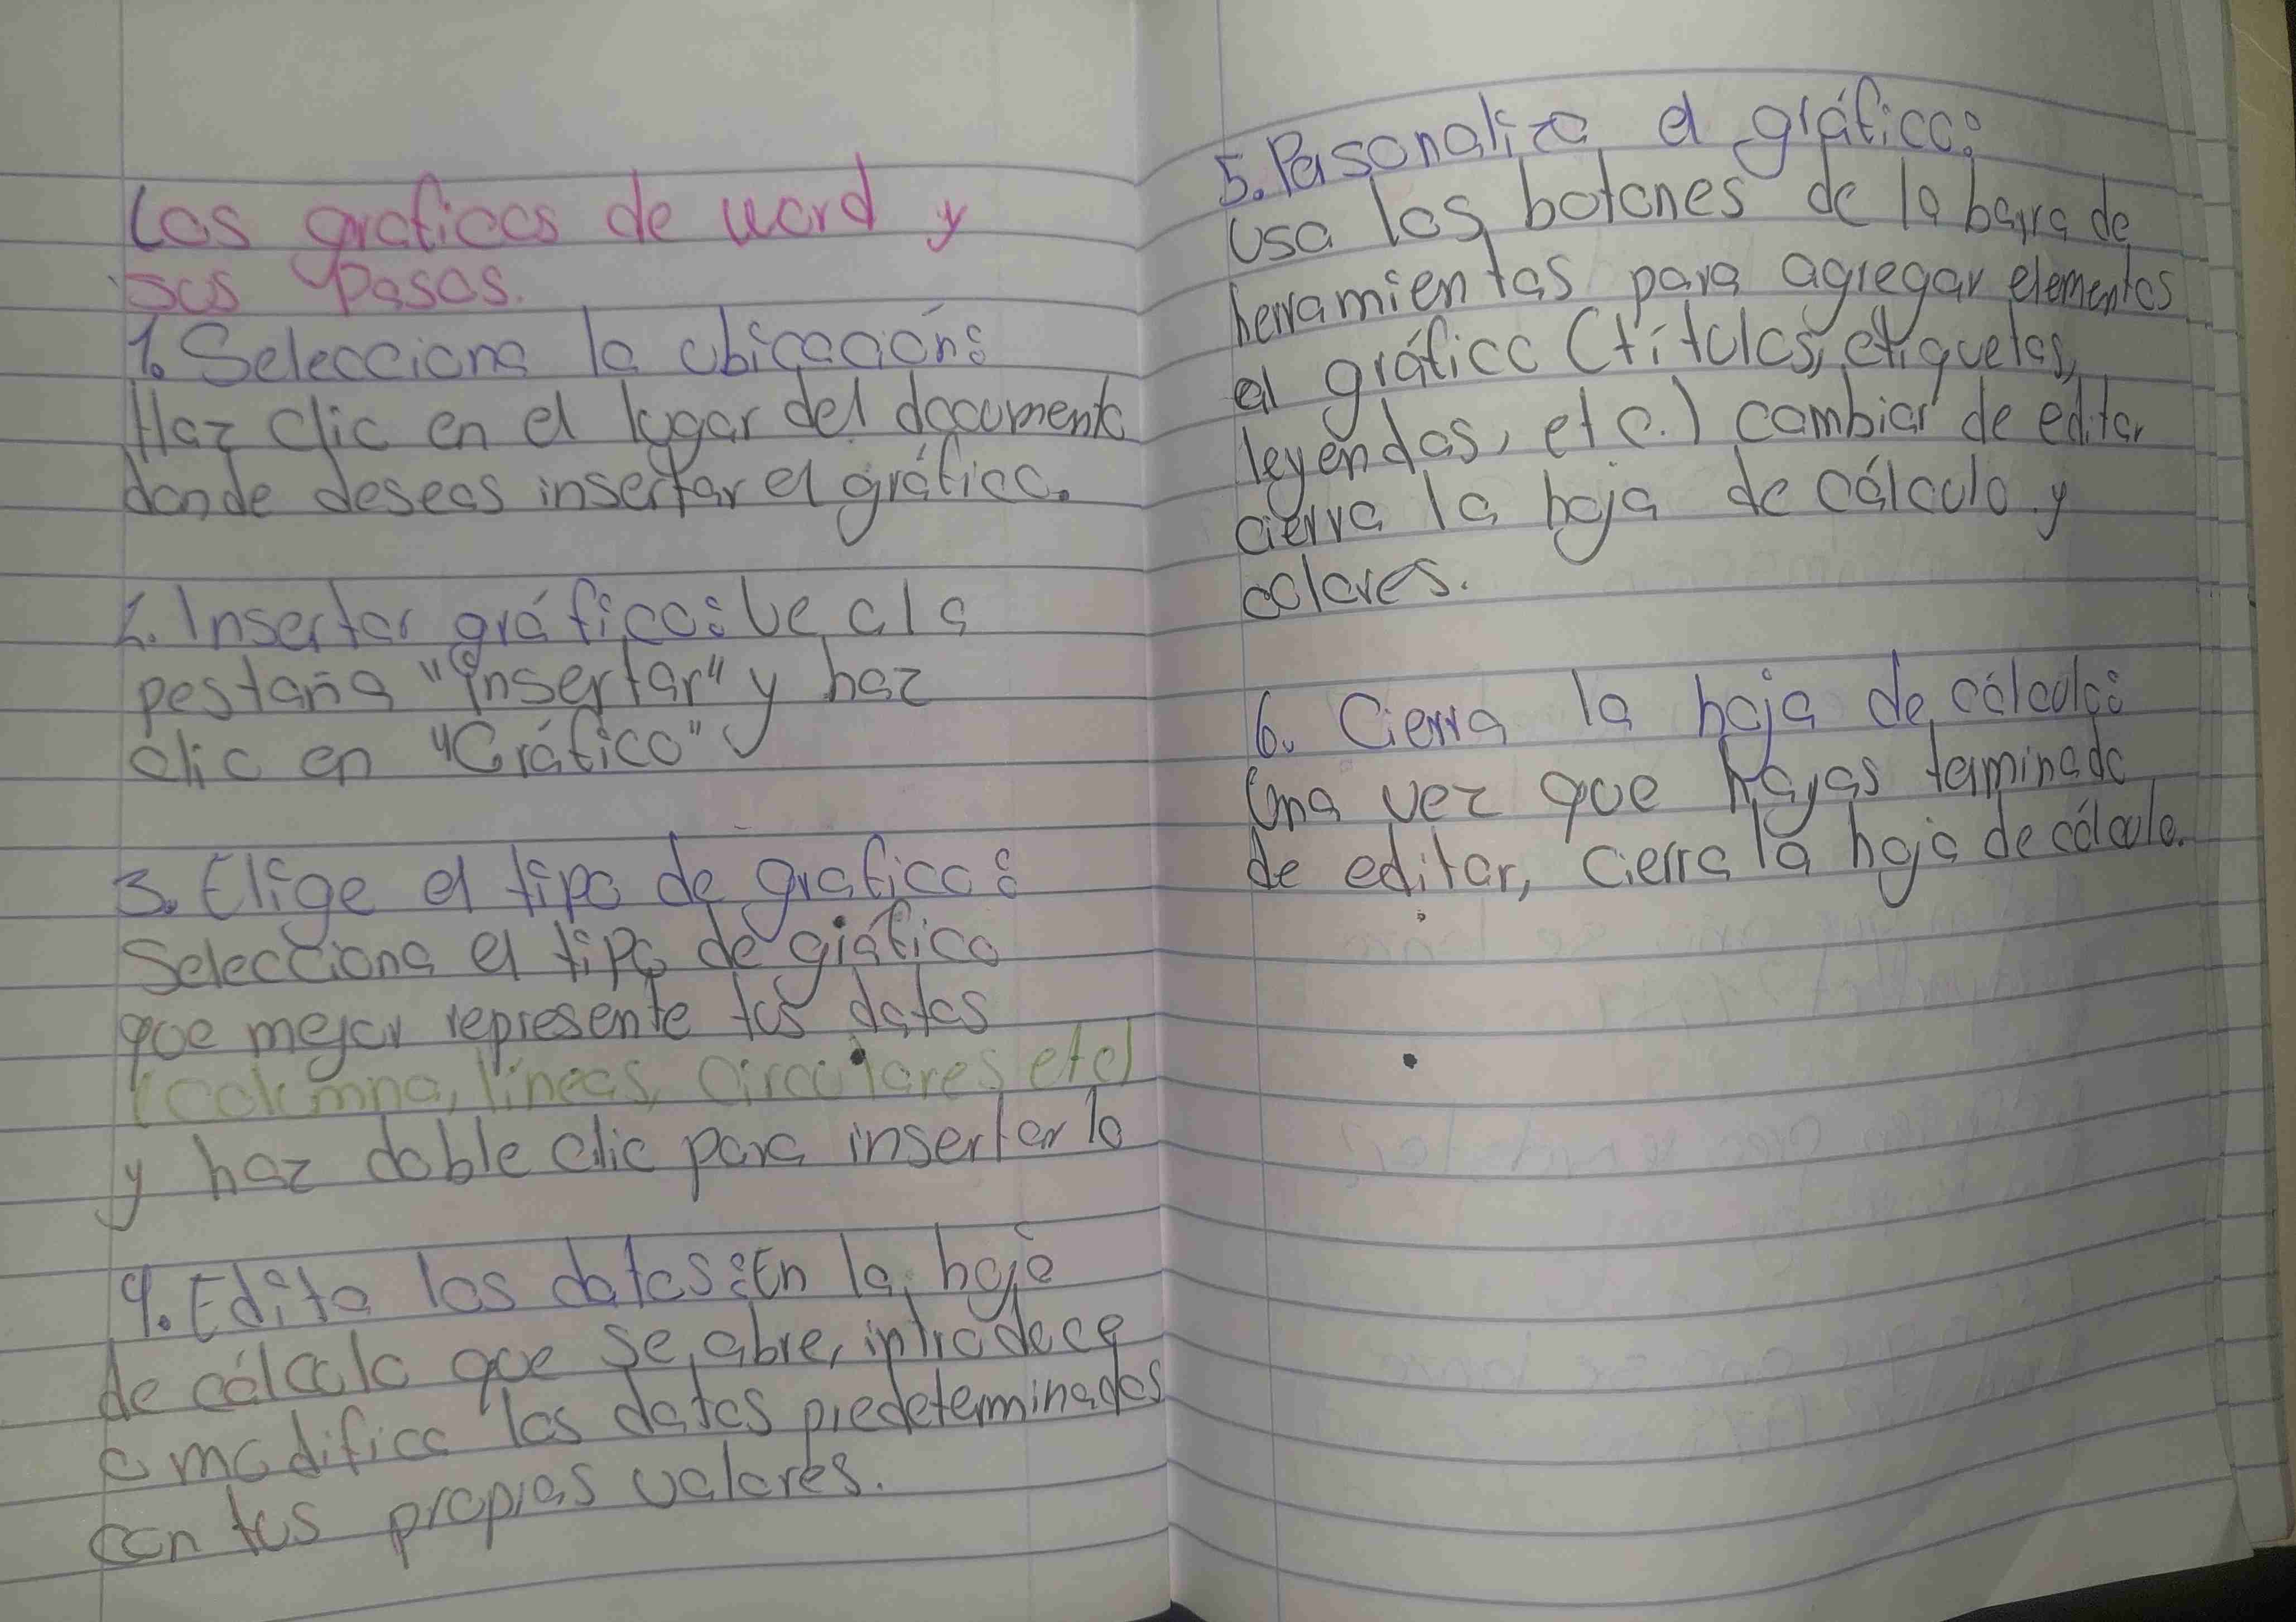 Los graficos de word y
sus pasos.
1. Selecciona la ubicación:
Haz clic en el lugar del documento
donde deseas insertar el gráfico.
2. Insertar gráfico: Ve a la
pestaña "insertar" y haz
clic en "Gráfico"
3. Elige el tipo de grafico:
Selecciona el tipo de gráfico
que mejor represente tus datos
(columna, líneas, circulares etc)
y haz doble clic para insertarlo
4. Edita los datos: En la hoja
de cálculo que se abre, introdece
o modifica los datos predeterminados
con tus propios valores.
5. Personaliza el gráfico:
Usa los botones de la barra de
herramientas para agregar elementos
al gráfico (títulos, etiquetas,
leyendas, etc.) cambiar de editar
cierra la hoja de cálculo y
colores.
6. Cierra la hoja de cálculo:
Una vez que hayas terminado
de editar, cierra la hoja de cálculo.